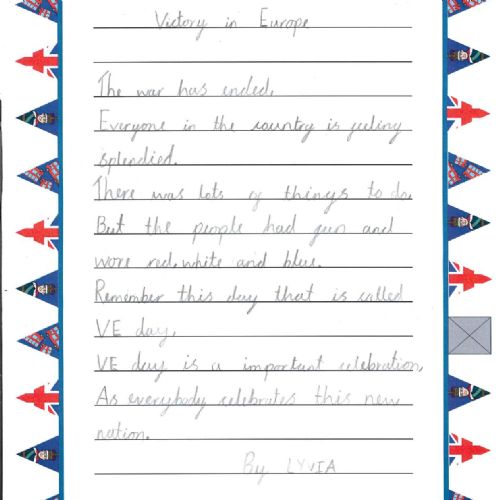 Victory in Europe
The war has ended.
Everyone in the country is feeling
splendied.
There was lots of things to do,
But the people had fun and
wore red, white and blue.
Remember this day that is called
VE day,
VE day is a important celebration,
As everybody celebrates this new
nation.
By LYVIA